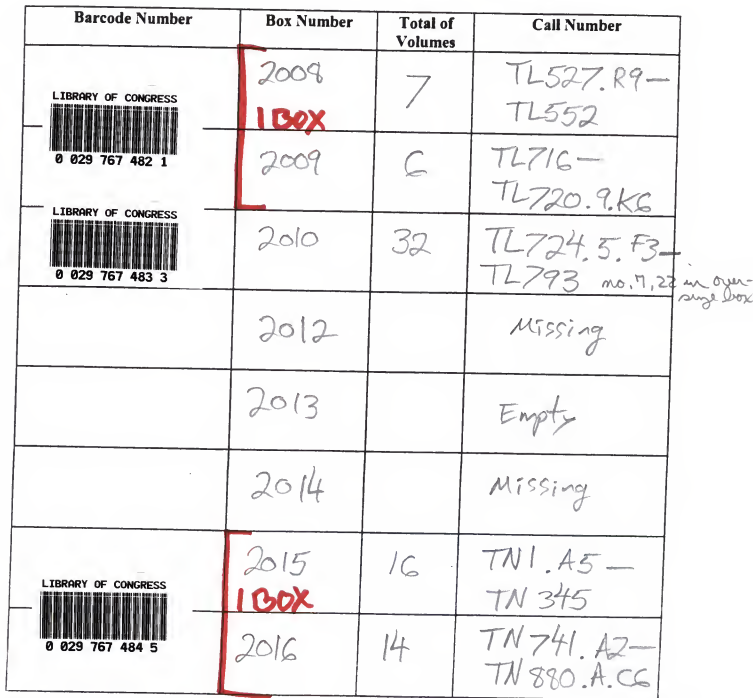 Barcode Number Box Number Total of Volumes Call Number
LIBRARY OF CONGRESS
0 029 767 482 1
2008
1 BOX
7
TL527.R9—
TL552
2009
6
TL716—
TL720.9.K6
LIBRARY OF CONGRESS
0 029 767 483 3
2010
32
TL724.5.F3—
TL793 no. 7, 22 in over-
size box
2012
Missing
2013
Empty
2014
Missing
LIBRARY OF CONGRESS
0 029 767 484 5
2015
1 BOX
16
TN1.A5—
TN 345
2016
14
TN 741.A2—
TN 880.A.C6